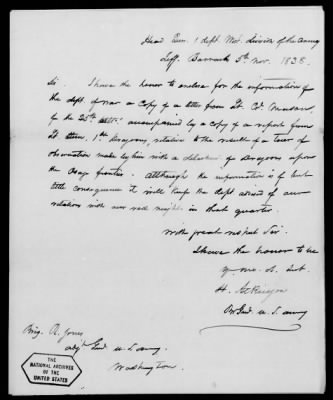 Head Qrs. 1 dept. Wn. division of the army
Jeff. Barracks 5th Nov. 1838.
Sir I have the honor to enclose for the information of
the dept. of war a Copy of a letter from Lt. Col.
of the accompanied by a copy of a report from
Lt. 1st Dragoons, relative to the result of a tour of
observation made by him with a detachmt. of dragoons upon
the Osage frontier. Although the information is of but
little consequence it will keep the dept advised of our
relations with our red neighbs. in that quarter.
With great respect Sir.
I have the honor to be
Yr. mo. o. Svt.
H. Atkinson
Br Genl. U.S. army
Brig. R. Jones
adjt Genl U.S. army
Washington
THE
NATIONAL ARCHIVES
OF THE
UNITED STATES